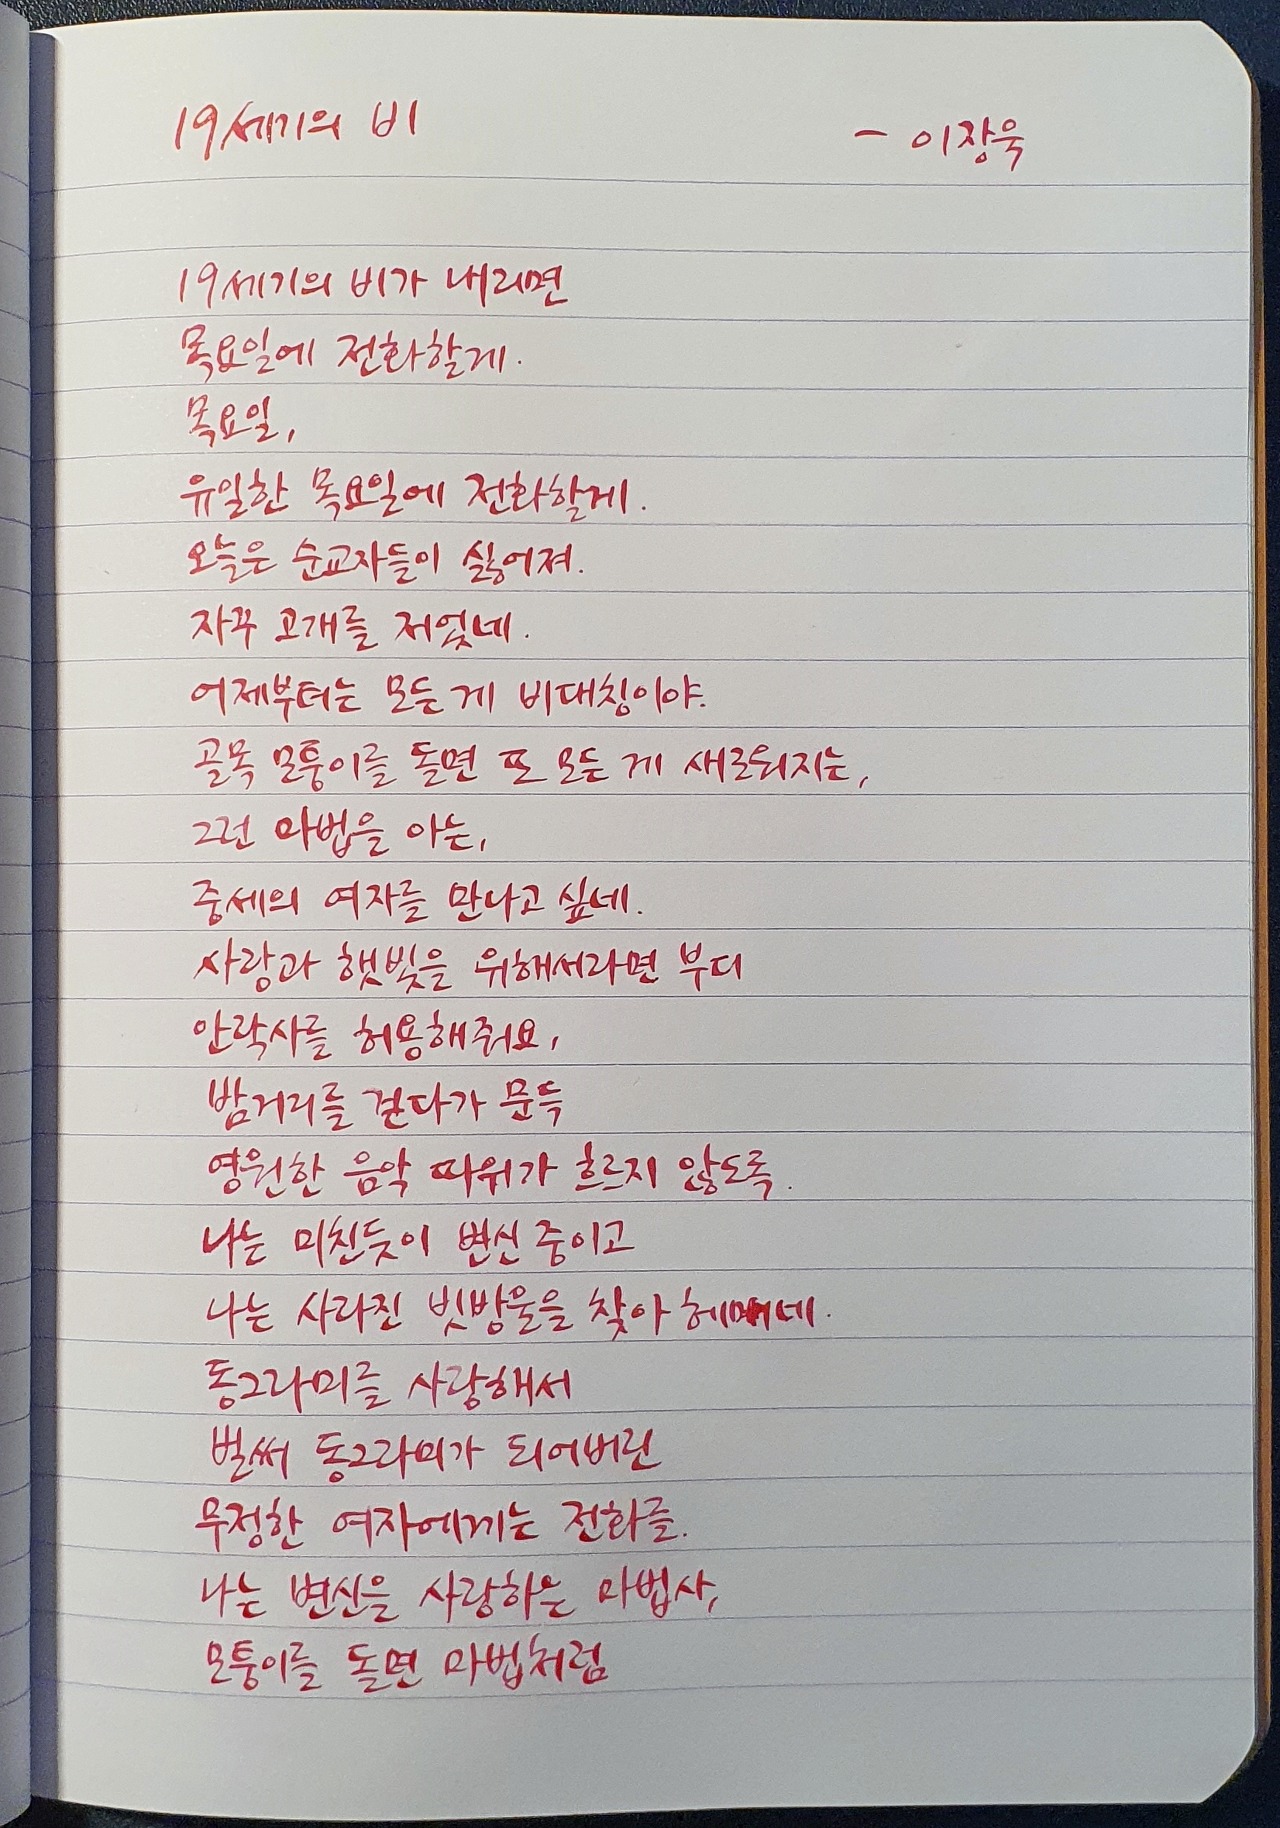 19세기의 비
- 이장욱
19세기의 비가 내리면
목요일에 전화할게.
목요일,
유일한 목요일에 전화할게.
오늘은 순교자들이 싫어져.
자꾸 고개를 저었네.
어제부터는 모든 게 비대칭이야.
골목 모퉁이를 돌면 또 모든 게 새로워지는,
그런 마법을 아는,
중세의 여자를 만나고 싶네.
사랑과 햇빛을 위해서라면 부디
안락사를 허용해줘요,
밤거리를 걷다가 문득
영원한 음악 따위가 흐르지 않도록.
나는 미친듯이 변신 중이고
나는 사라진 빗방울을 찾아 헤매네.
동그라미를 사랑해서
벌써 동그라미가 되어버린
무정한 여자에게는 전화를.
나는 변신을 사랑하는 마법사,
모퉁이를 돌면 마법처럼